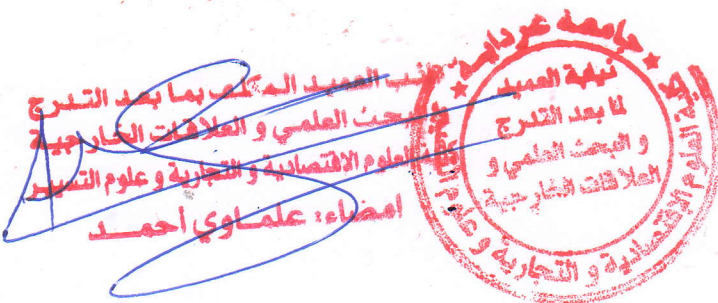 نائب العميد المكلف بما بعد التدرج
البحث العلمي و العلاقات الخارجية
العلوم الاقتصادية و التجارية و علوم التسيير
امضاء: علماوي أحمد
جامعة غرداية
نيابة العميد
لما بعد التدرج
و البحث العلمي و
العلاقات الخارجية
كلية العلوم الاقتصادية و التجارية و علوم